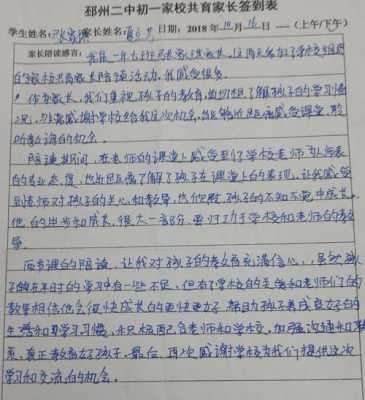 邳州二中初一家校共育家长签到表
学生姓名: 家长姓名: 日期: 2018年10月16日 ---- (上午/下午)
家长陪读感言: 我是一年 班 家长, 这两天参加了学校组织
的家校共育家长陪读活动, 我感受很多。
作为家长, 我们重视孩子的教育, 迫切想了解孩子的学习情
况, 非常感谢学校给我这次机会, 能够近距离感受课堂, 聆
听教诲的机会。
陪读期间, 在老师的课堂上感受到了学校老师
的专业态度, 也近距离了解了孩子在课堂上的表现, 让我感受
到老师对孩子的关心和教导, 孩子的不知不觉中成长。
他的进步和成长, 很大一部分, 要归功于学校和老师的教
导。
两节课的陪读, 让我对孩子的教育充满信心, 虽然孩
子的在平时的学习中有一些不足, 但有了学校的 和老师们的
教导相信他会很快成长的更快更好, 帮助孩子养成良好的
生活和学习习惯, 积极配合老师和学校, 加强沟通和联
系, 真正教育好孩子, 最后, 再次感谢学校为我们提供这次
学习和交流的机会。